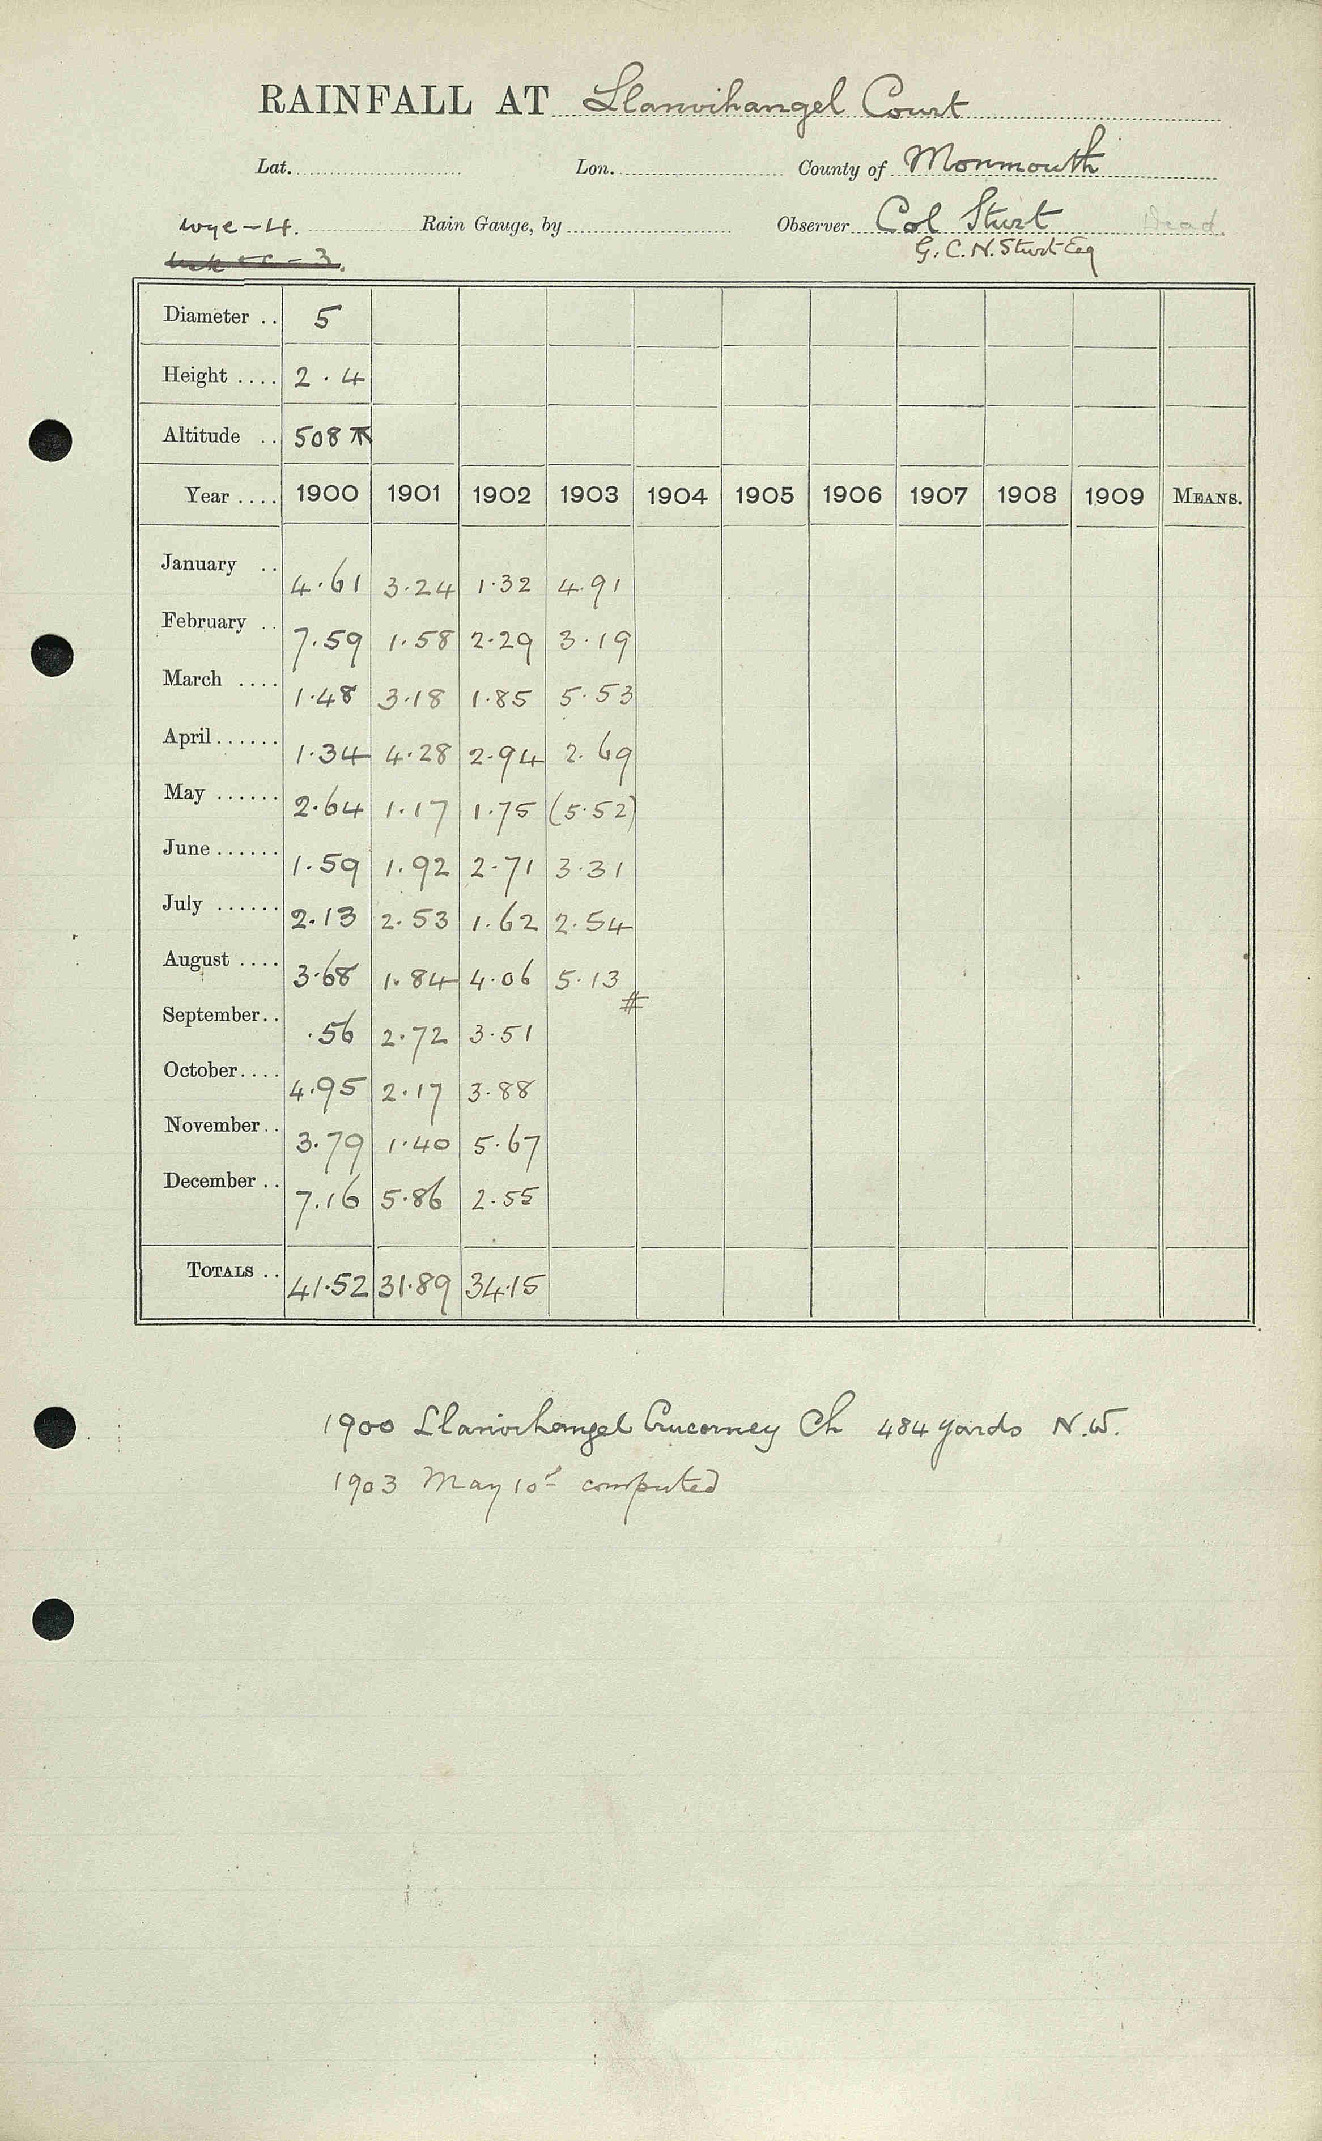 RAINFALL AT Llanvihangel Court
Lat. Lon. County of Monmouth
Wye - 4. Rain Gauge, by Observer Col Sturt Dead.
G. C. N. Sturt Esq
Diameter .. 5
Height .... 2 . 4
Altitude .. 508
Year .... 1900 1901 1902 1903 1904 1905 1906 1907 1908 1909 MEANS.
January .. 4.61 3.24 1.32 4.91
February .. 7.59 1.58 2.29 3.19
March .... 1.48 3.18 1.85 5.53
April ...... 1.34 4.28 2.94 2.69
May ...... 2.64 1.17 1.75 (5.52)
June ...... 1.59 1.92 2.71 3.31
July ...... 2.13 2.53 1.62 2.54
August .... 3.68 1.84 4.06 5.13 #
September.. .56 2.72 3.51
October.... 4.95 2.17 3.88
November.. 3.79 1.40 5.67
December .. 7.16 5.86 2.55
TOTALS .. 41.52 31.89 34.15
1900 Llanvihangel Crucorney Ch 484 yards N.W.
1903 May computed